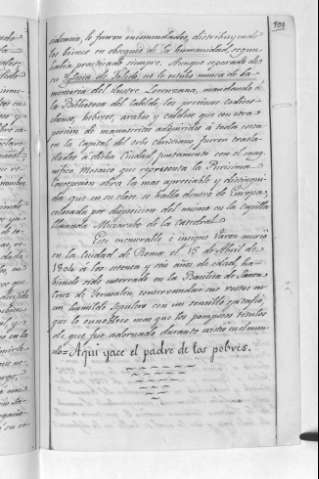 sidencia, le fueron encomendados, distribuyendo
los bienes en obsequio de la humanidad segun
habia practicado siempre. Aunque separado de
su Yglesia de Toledo, no se estuvo nunca de la
memoria del Ilustre Lorenzana, mandando á
la Biblioteca del Cabildo los preciosos codices
hebreos, árabes y caldeos que con otra
porcion de manuscritos adquiridos á toda costa
en la capital del orbe cristiano, fueron trasla-
dados á dicha Ciudad, juntamente con el mag-
nifico Mosaico que representa la Purisima
Concepcion obra la mas apreciable y distingui-
da que en su clase se halla dentro de Europa,
colocada por disposicion del mismo en la capilla
llamada Mozarabe de la Catedral.
Este memorable é insigne Varon murió
en la Ciudad de Roma el 17 de Abril de
1804 á los setenta y seis años de edad, ha-
biendo sido enterrado en la Basilica de Santa
Cruz de Jerusalen, conservandose sus restos en
un humilde sepulcro con un sencillo epitafio,
que lo ennoblece mas que los pomposos titulos
de que fue adornado durante existió en el mun-
do = Aqui yace el padre de los pobres.